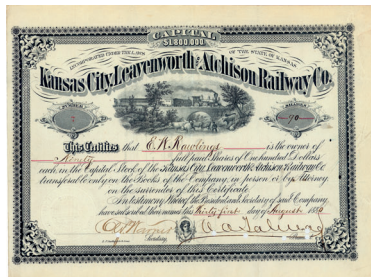 CAPITAL
$1,800,000
INCORPORATED UNDER THE LAWS OF THE STATE OF KANSAS
Kansas City, Leavenworth and Atchison Railway Co.
NUMBER SHARES
90
This Certifies that E. W. Rawlings is the owner of
Ninety full paid Shares of One hundred Dollars
each in the Capital Stock of the Kansas City, Leavenworth and Atchison Railway Co.
transferable only on the Books of the Company in person or by Attorney
on the surrender of this Certificate
In testimony Whereof the President and Secretary of said Company
have set and of thousand this thirty first day of August
Secretary